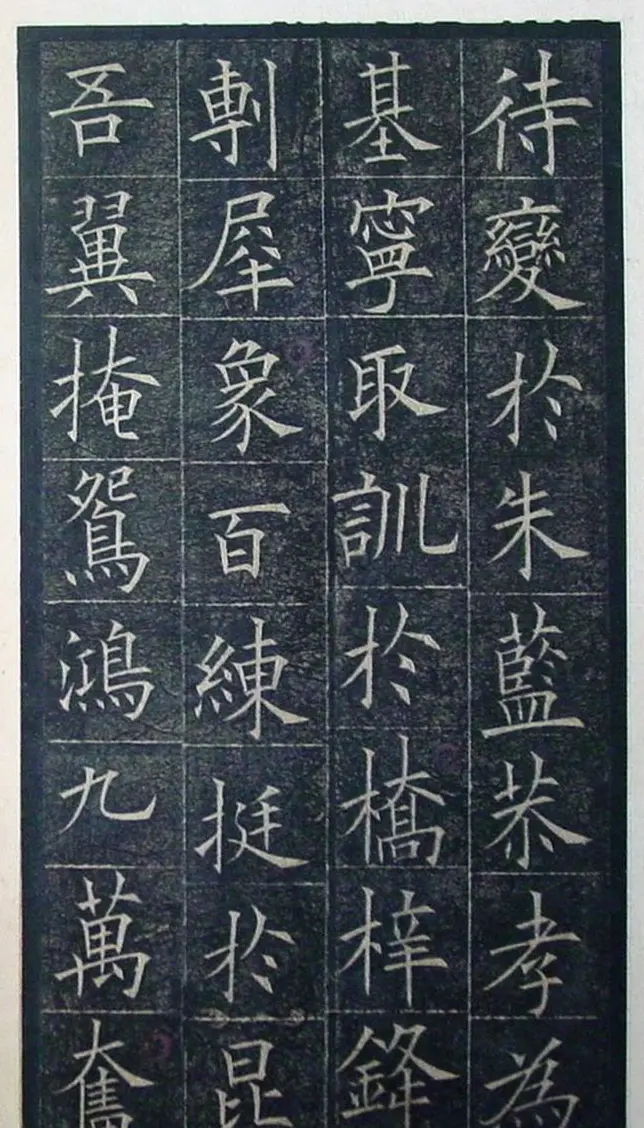 待變於朱藍恭孝為
基寧取訓於橋梓鋒
剸犀象百練挺於昆
吾翼掩鴛鴻九萬奮